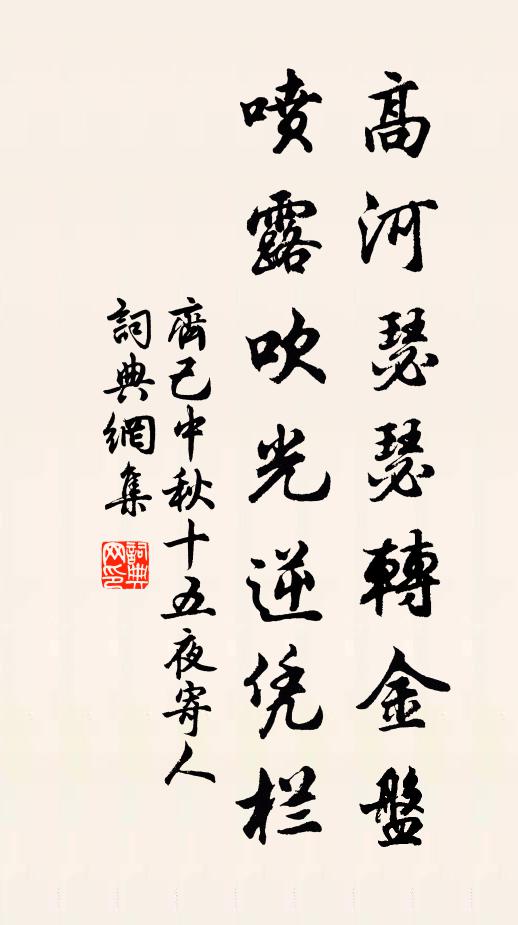 高河瑟瑟轉金盤
噴露吹光逆凭栏
齊己中秋十五夜寄人
詞典網集
詞典网印